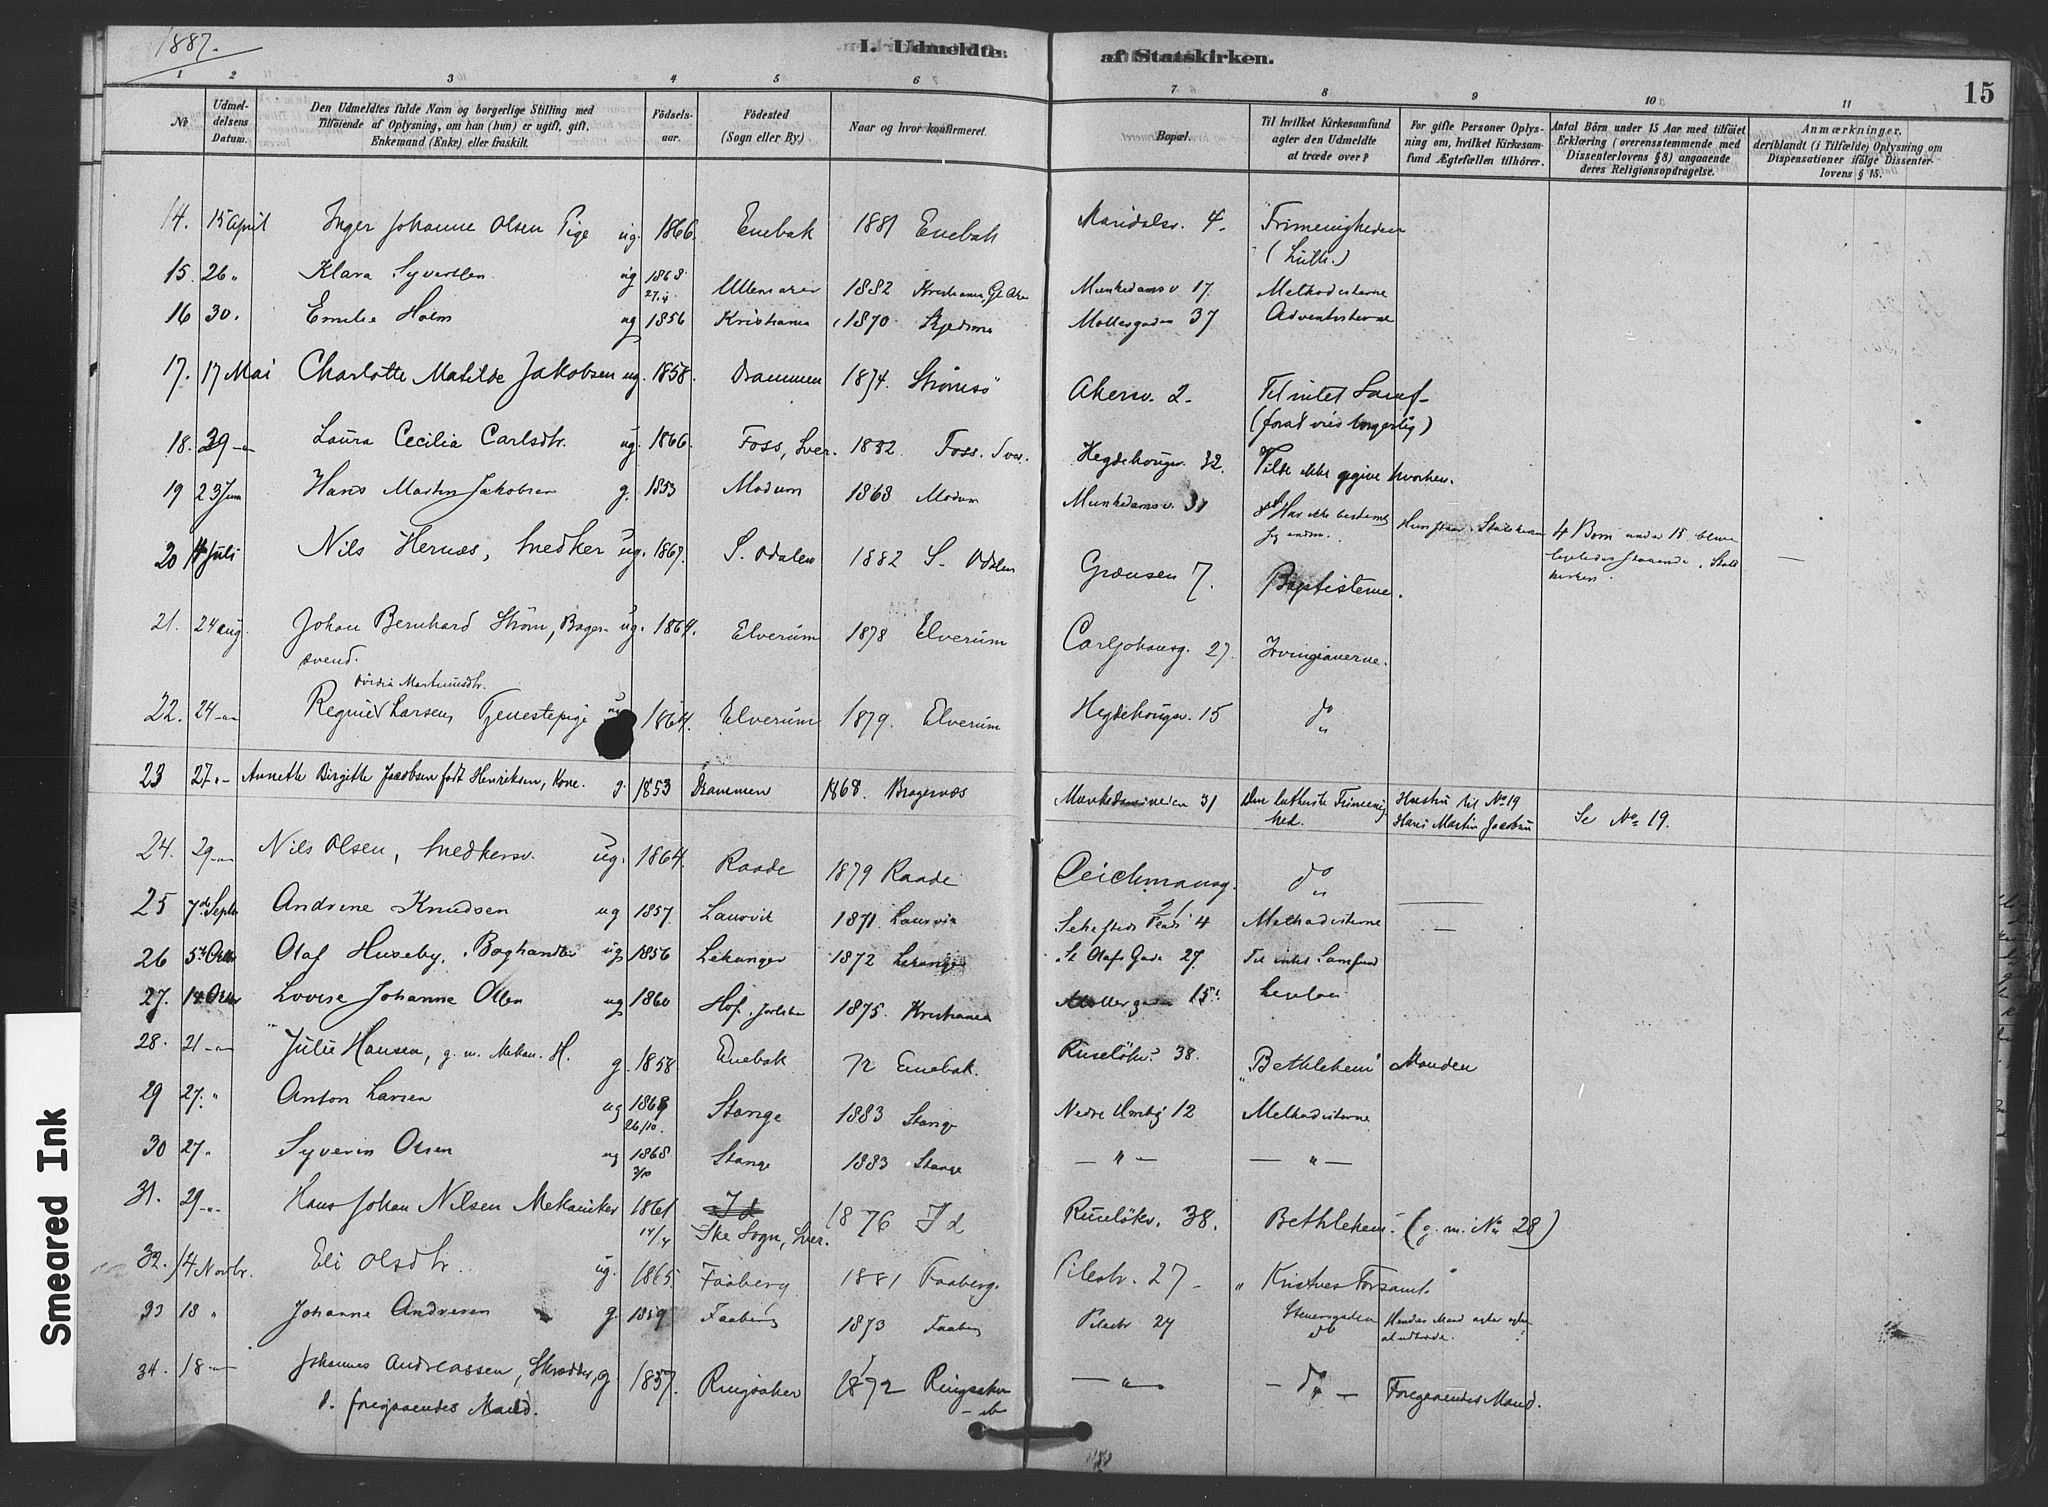 1887.
I. Udmeldte af Statskirken.
15
1 2 3 4 5 6 7 8 9 10 11
No
Udmeldelsens Datum.
Den Udmeldtes fulde Navn og borgerlige Stilling med Tilføiende af Oplysning, om han (hun) er ugift, gift, Enkemand (Enke) eller fraskilt.
Fødselsaar.
Fødested (Sogn eller By.)
Naar og hvor konfirmeret.
Bopæl.
Til hvilket Kirkesamfund agter den Udmeldte at træde over?
For gifte Personer Oplysning om, hvilket Kirkesamfund Ægtefællen tilhører.
Antal Børn under 15 Aar med tilføiet Erklæring (overensstemmende med Dissenterlovens § 8) angaaende deres Religionsopdragelse.
Anmærkninger, deriblandt (i Tilfælde) Oplysning om Dispensationer ifølge Dissenterlovens § 15.
14. 15 April Inger Johanne Olsen Pige ug. 1866. Enebak 1881 Enebak Maridalsv. 4. Frimenigheden
(Luth.)
15. 26 " Klara Syvertsen ug 1868 27/4 Ullensaker 1882 Kristiania, Gl. Aker Munkedamsv 17. Methodisterne
16 30. Emilie Holm ug 1856 Kristiania 1870 Skjedsmo Møllergaden 37 Adventisterne
17. 17 Mai Charlotte Matilde Jakobsen ug. 1858. Drammen 1874. Strømsö Akersv. 2. Til intet Samf.
(forat vies borgerlig)
18. 39 -"- Laura Cecilia Carlsdtr. ug. 1866. Foss, Sver. 1882. Foss. Sver. Hegdehougsv. 32. Vilde ikke opgive hvorhen.
19 23 Juni Hans Martin Jakobsen g. 1853 Modum 1868 Modum Munkedamsv. 31 Har ikke bestemt
sig endnu. Hun staar i Statskirken 4 Børn under 15 blive
ligeledes staaende i Stats
kirken.
20 14 Juli Nils Hernæs, Snedker ug. 1867. S. Odalen 1882 S. Odalen Grænsen 7. Baptisterne.
21. 24 Aug. Johan Bernhard Strøm, Bager- ug. 1864. Elverum 1878 Elverum Carljohansg. 27. Irvingianerne.
svend.
Martinusdtr.
22. 24 -"- Larsen, Tjenestepige ug 1864. Elverum 1879. Elverum Hegdehougsv. 15 do "
23 27 "- Annette Birgitte Jacobsen født Henriksen, Kone. g. 1853 Drammen 1868. Bragernæs Munkedamsveien 31 Den lutherske Frimenig
hed. Hustru til No 19
Hans Martin Jacobsen Se No 19.
24. 29 -"- Nils Olsen, Snedkersv. ug. 1864. Raade 1879 Raade Deichmansg. 21 do "
25 7de Septbr Andrine Knudsen ug 1857. Laurvik 1871 Laurvik Sehesteds Plads 4 Methodisterne
26 5te Octbr Olaf Huseby, Boghandler ug. 1856 Lekanger 1872 Lekanger St Olafs Gade 27. Til intet Samfund
27. 14 Octbr Lovise Johanne Olsen ug 1860 Hof, Jarlsberg 1875. Kristiania Møllergaden 15 Ligeledes
28. 21 -"- Julie Hansen, g. m. Mekan. H. g. 1858 Enebak 72 Enebak. Ruselökv. 38. "Bethlehem" Manden
29 27. " Anton Larsen ug 1868 26/10. Stange 1883 Stange 12 Methodisterne
30 27. Syverin Olsen ug 1868 3/10 Stange 1883 Stange — " — — " —
31. 29 -"- Hans Johan Nilsen Mekaniker 1861 14/4 Id
Ske Sogn, Sver. 1876 Id Ruselökv. 38. Bethlehem. (g. m. No 28)
32. 14 Novbr. Eli Olsdtr. ug. 1865 Faaberg 1881 Faaberg. Pilestr. 27 " Kristnes Forsaml. "
33 18 " Johanne Andresen g. 1859 Faaberg 1873 Faaberg Pilestr 27 Stenersgaden Hendes Mand agter ogsaa
at udtræde.
34. 18 -"- Johannes Andreassen, Skrædder, g 1857. Ringsaker 1872 Ringsaker — " — — do — Foregaaendes Mand.
d. foregaaendes Mand.
Smeared Ink